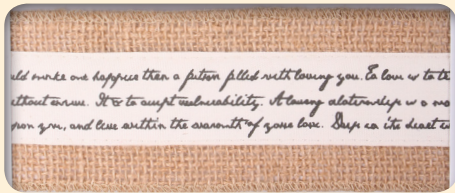 uld make me happier than a future filled with loving you. To love is to
without . It is to accept vulnerability. A loving relationship is a
upon you, and live within the warmth of your love. Deep in its heart